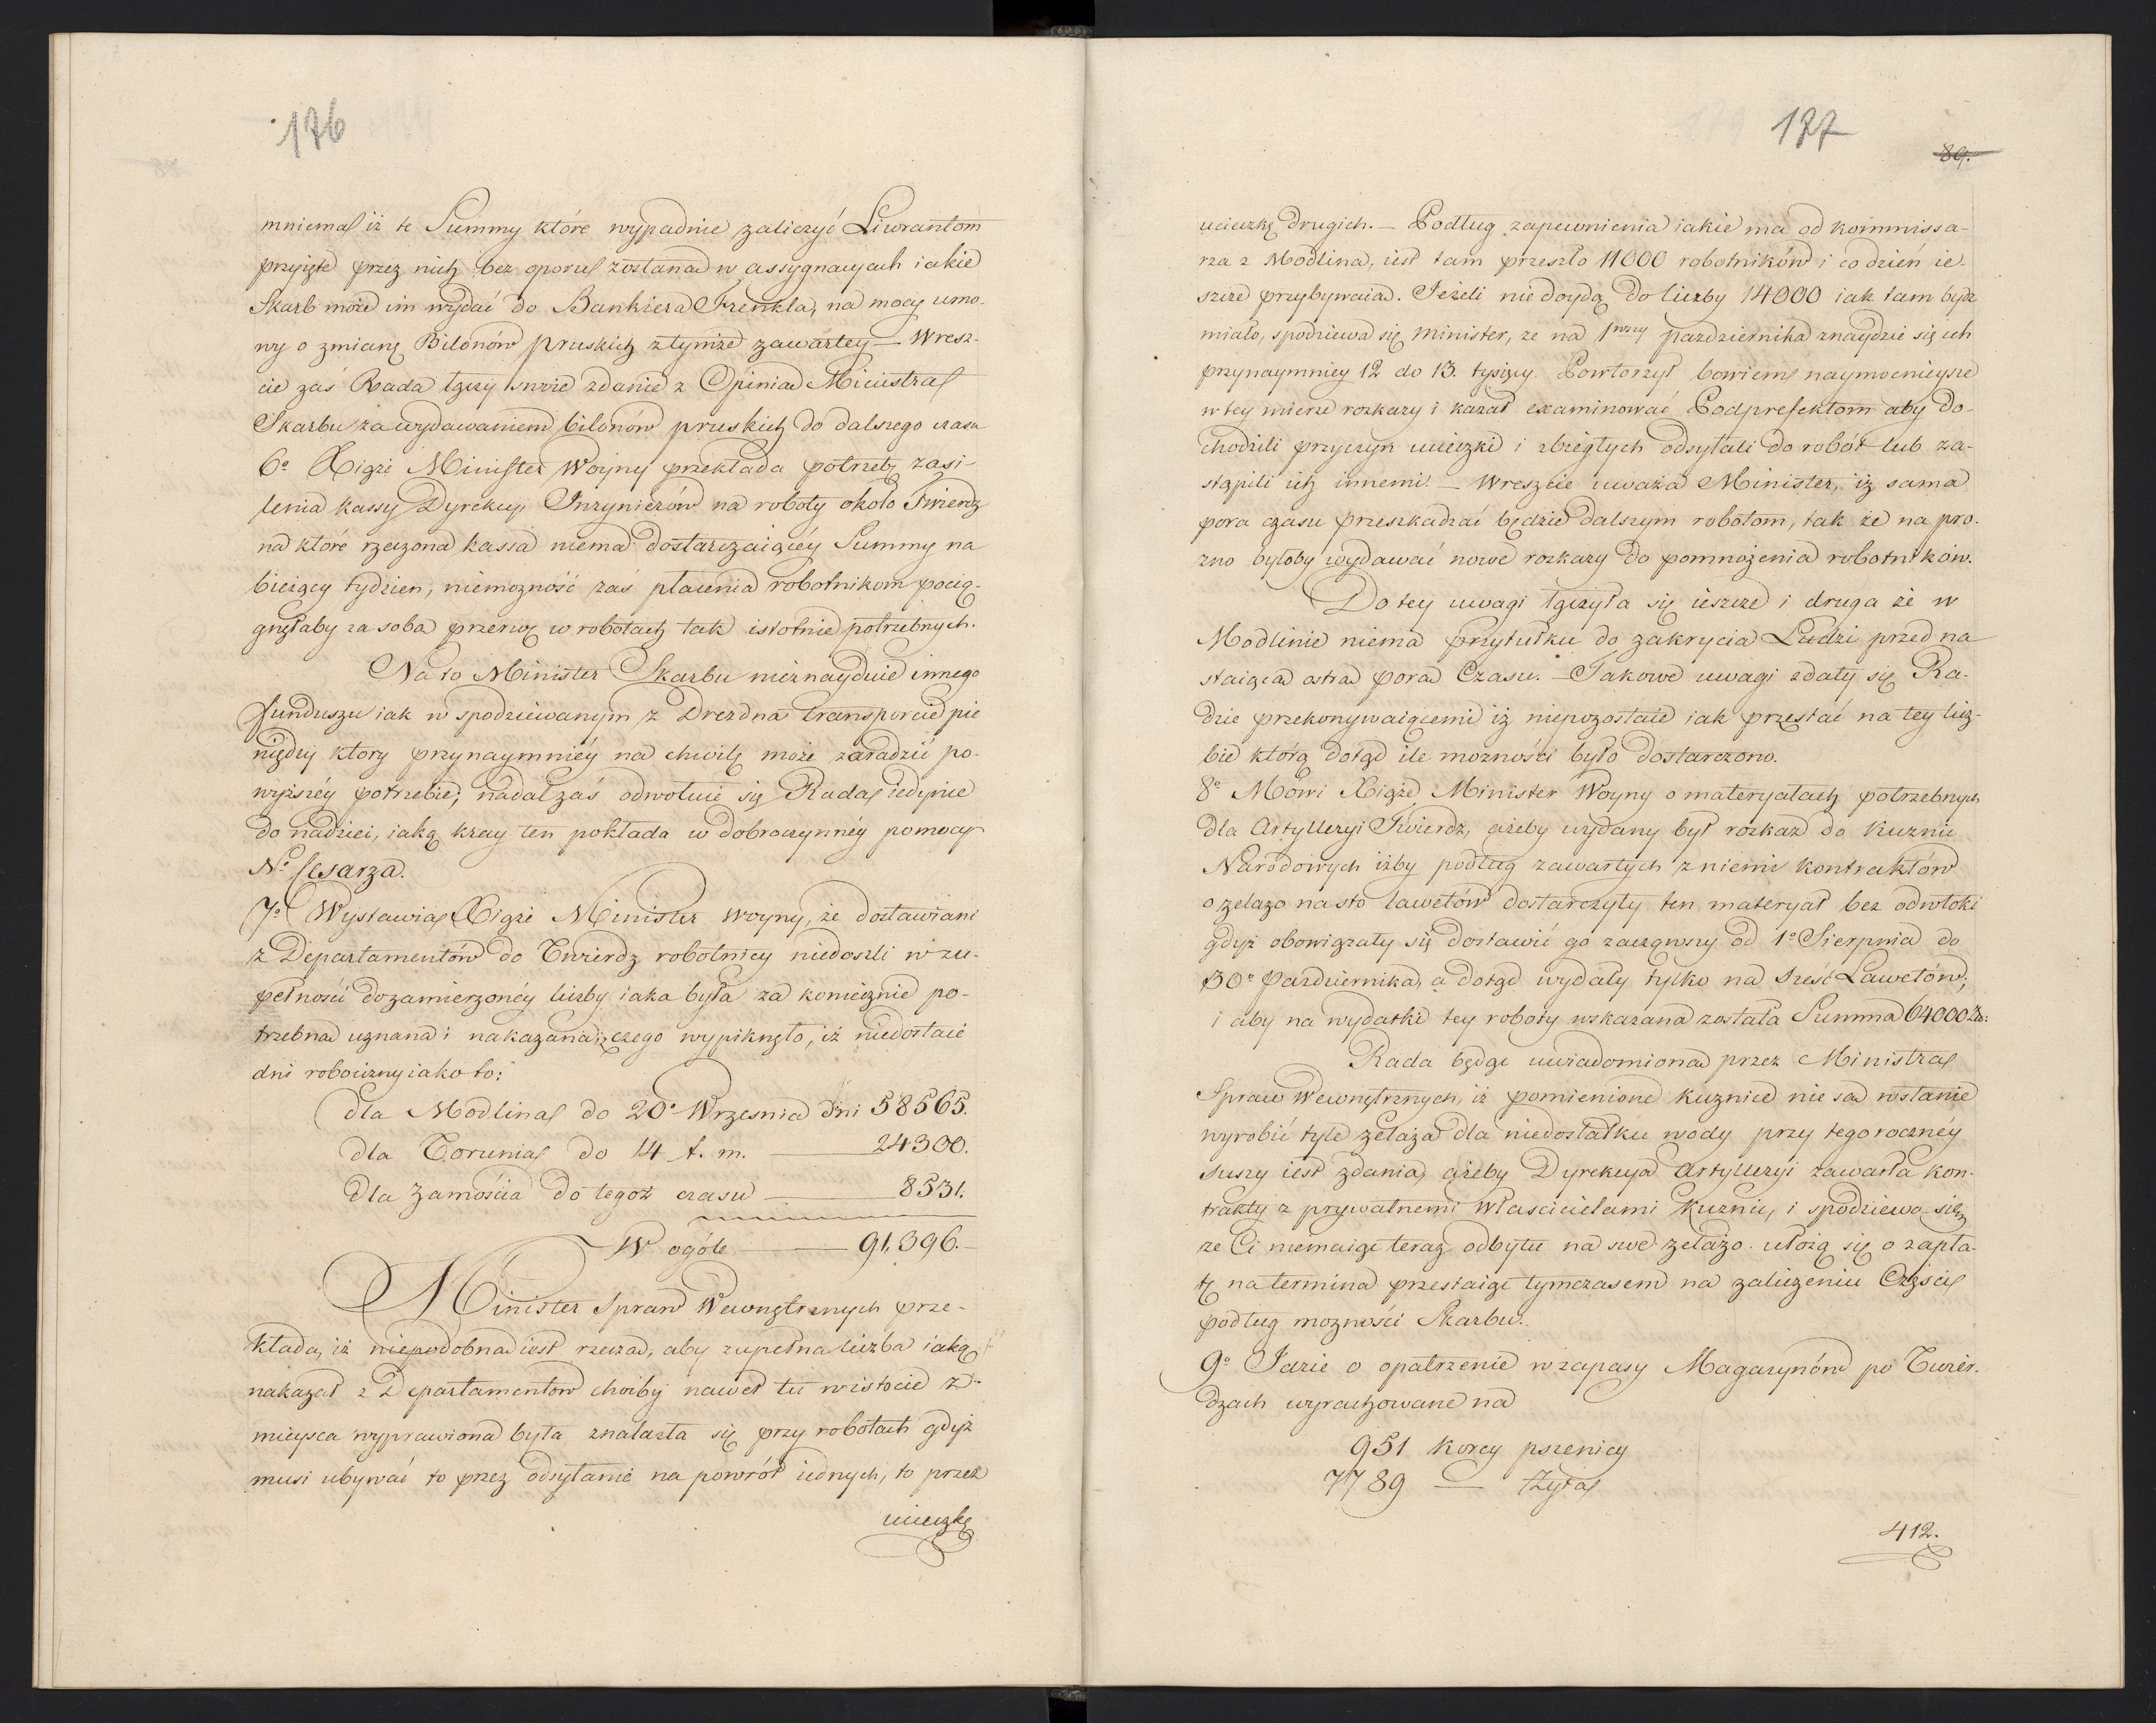 176
mniema iż te Summy które wypadnie zaliczyć Liwrantom
przyięte przez nich bez oporu zostaną w assygnacyach iakie
Skarb może im wydać do Bankiera Frenkla, na mocy umo-
wy o zmianę Bilonów pruskich z tymże zawartey — Wresz-
cie zaś Rada łączy swoie zdanie z Opinią Ministra
Skarbu za wydawaniem bilonów pruskich do dalszego czasu
6o Xiąże Minister Woyny przekłada potrzebę zasi-
lenia kassy Dyrekcyi Inżynierów na roboty około Twierdz
na które rzeczona kassa niema dostarczaiącéy Summy na
bieżący tydzien, niemożność zaś płacenia robotnikom pocią-
gnęłaby za sobą przerwę w robotach tak istotnie potrzebnych.
Na to Minister Skarbu nieznayduie innego
funduszu iak w spodziewanym z Drezdna transporcie pie
niędzy ktory przynaymniéy na chwilę może zaradzić po-
wyższéy potrzebie; nadal zaś odwołuie się Rada iedynie
do nadziei, iaką kray ten pokłada w dobroczynnéy pomocy
No Cesarza.
7o Wystawia Xiąże Minister Woyny, że dostawiani
z Departamentów do Twierdz robotnicy niedoszli w zu-
pełności do zamierzonéy liczby iaka była za koniecznie po-
trzebną uznana i nakazana; z czego wyniknęło, iż niedostaie
dni robocizny iako to:
dla Modlina do 20o Wrzesnia dni 58565.
dla Torunia do 14 t. m. — 24300.
dla Zamościa do tegoż czasu — 8531.
W ogóle — 91,396.
Minister Spraw Wewnętrznych prze-
kłada, iż niepodobna iest rzeczą, aby zupełna liczba iaką
nakazał z Departamentow choćby nawet tu w istocie z
mieysca wyprawiona była znalazła się przy robotach gdyż
musi ubywać to przez odsyłanie na powrót iednych, to przez
ucieczkę
177
89.
ucieczkę drugich. — Podług zapewnienia iakie ma od kommissa-
rza z Modlina, iest tam przeszło 11000 robotników i co dzień ie-
szcze przybywaią. Jeżeli nie doydą do liczby 14000 iak tam bydz
miało, spodziewa się Minister, ze na 1wszy pazdziernika znaydzie się ich
przynaymniey 12 do 13. tysięcy. Powtorzył bowiem naymocnieysze
w tey mierze rozkazy i kazał examinować Podprefektom aby do-
chodzili przyczyn ucieczki i zbiegłych odsyłali do robót lub za-
stąpili ich innemi. — Wreszcie uważa Minister, iż sama
pora czasu przeszkadzać będzie dalszym robotom, tak że na pro-
zno byłoby wydawać nowe rozkazy do pomnożenia robotników.
Do tey uwagi łączyła się ieszcze i druga że w
Modlinie niema przytułku do zakrycia Ludzi przed na
staiącą ostrą porą Czasu. — Takowe uwagi zdały się Ra-
dzie przekonywaiącemi iż niepozostaie iak przestać na tey licz-
bie którą dotąd ile możności było dostarczono.
8o Mówi Xiąże Minister Woyny o materyałach potrzebnych
dla Artylleryi Twierdz, ażeby wydany był rozkaz do Kuznic
Narodowych iżby podług zawartych z niemi kontraktów
o żelazo na sto lawetów dostarczyły ten materyał bez odwłoki
gdyż obowiązały się dostawić go zacząwszy od 1o Sierpnia do
30o Pazdziernika, a dotąd wydały tylko na sześć Lawetów;
i aby na wydatki tey roboty wskazana została Summa 64000 Zło:
Rada będąc uwiadomiona przez Ministra
Spraw Wewnętrznych, iż pomienione kuznice nie są w stanie
wyrobić tyle żelaza dla niedostatku wody przy tegoroczney
suszy iest zdania, ażeby Dyrekcya Artylleryi zawarła kon-
trakty z prywatnemi właścicielami Kuznic, i spodziewa się,
ze Ci niemaiąc teraz odbytu na swe żelazo. ułożą się o zapła-
tę na termina przestaiąc tymczasem na zaliczeniu Części
podług możności Skarbu.
9o Idzie o opatrzenie w zapasy Magazynów po Twier-
dzach wyrachowane na
951 Korcy pszenicy
7789 — żyta
412.